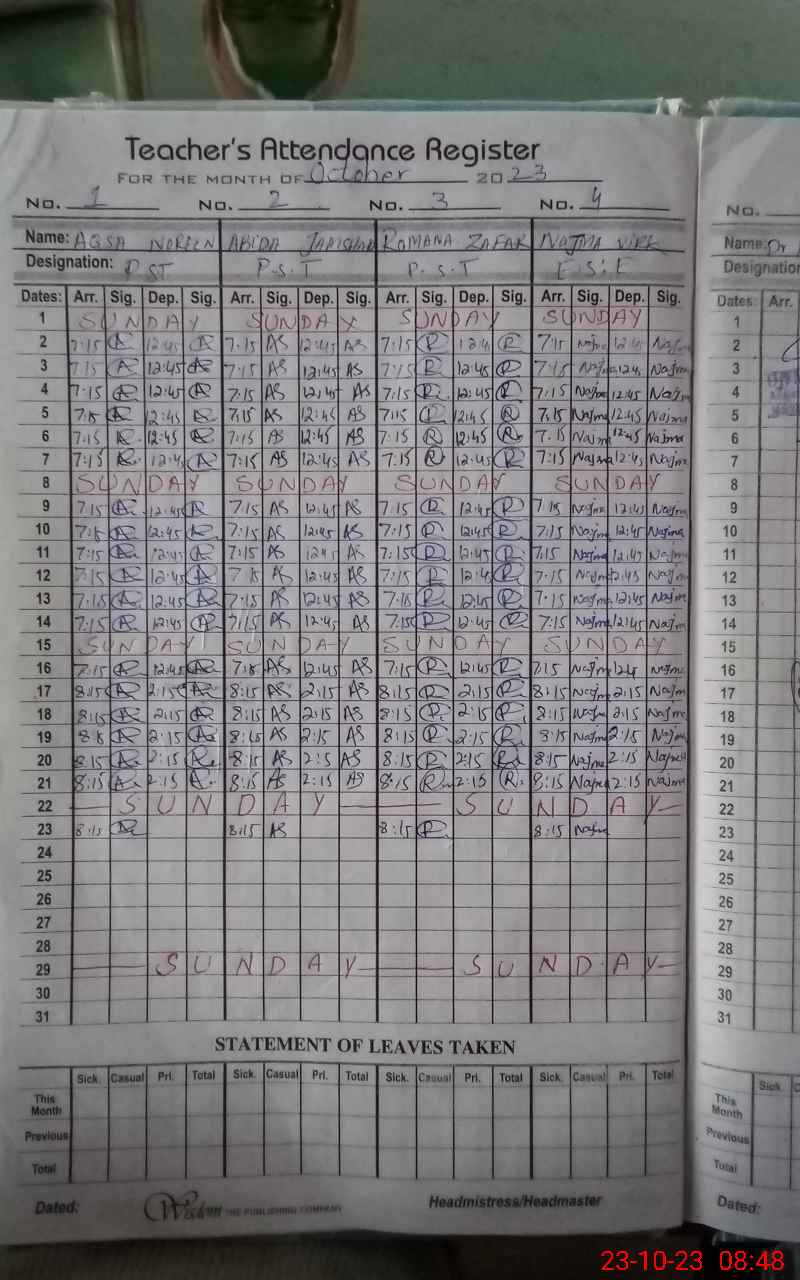 Teacher's Attendance Register
FOR THE MONTH OF October 2023
No. 1 No. 2 No. 3 No. 4 No.
Name: AQSA NOREEN ABIDA ROMANA ZAFAR NAJMA VIRK Name:
Designation: PST P.S.T P.S.T E.S.E Designation
Dates: Arr. Sig. Dep. Sig. Arr. Sig. Dep. Sig. Arr. Sig. Dep. Sig. Arr. Sig. Dep. Sig. Dates: Arr.
1 SUNDAY SUNDAY SUNDAY SUNDAY 1
2 7:15 12:45 7:15 AS 12:45 AS 7:15 R 12:4 R 7:15 Najma 12:45 Najma 2
3 7:15 12:45 7:15 AS 12:45 AS 7:15 R 12:45 R 7:15 Najma 12:45 Najma 3
4 7:15 12:45 7:15 AS 12:45 AS 7:15 R 12:45 R 7:15 Najma 12:45 Najma 4
5 7:15 12:45 7:15 AS 12:45 AS 7:15 R 12:45 R 7:15 Najma 12:45 Najma 5
6 7:15 12:45 7:15 AS 12:45 AS 7:15 R 12:45 R 7:15 Najma 12:45 Najma 6
7 7:15 12:45 7:15 AS 12:45 AS 7:15 R 12:45 R 7:15 Najma 12:45 Najma 7
8 SUNDAY SUNDAY SUNDAY SUNDAY 8
9 7:15 12:45 7:15 AS 12:45 AS 7:15 R 12:45 R 7:15 Najma 12:45 Najma 9
10 7:15 12:45 7:15 AS 12:45 AS 7:15 R 12:45 R 7:15 Najma 12:45 Najma 10
11 7:15 12:45 7:15 AS 12:45 AS 7:15 R 12:45 R 7:15 Najma 12:45 Najma 11
12 7:15 12:45 7:15 AS 12:45 AS 7:15 R 12:45 R 7:15 Najma 12:45 Najma 12
13 7:15 12:45 7:15 AS 12:45 AS 7:15 R 12:45 R 7:15 Najma 12:45 Najma 13
14 7:15 12:45 7:15 AS 12:45 AS 7:15 R 12:45 R 7:15 Najma 12:45 Najma 14
15 SUNDAY SUNDAY SUNDAY SUNDAY 15
16 7:15 12:45 7:15 AS 12:45 AS 7:15 R 12:45 R 7:15 Najma 12:4 Najma 16
17 8:15 2:15 8:15 AS 2:15 AS 8:15 R 2:15 R 8:15 Najma 2:15 Najma 17
18 8:15 2:15 8:15 AS 2:15 AS 8:15 R 2:15 R 8:15 Najma 2:15 Najma 18
19 8:15 2:15 8:15 AS 2:15 AS 8:15 R 2:15 R 8:15 Najma 2:15 Najma 19
20 8:15 2:15 8:15 AS 2:5 AS 8:15 R 2:15 R 8:15 Najma 2:15 Najma 20
21 8:15 2:15 8:15 AS 2:15 AS 8:15 R 2:15 R 8:15 Najma 2:15 Najma 21
22 SUNDAY SUNDAY 22
23 8:15 8:15 AS 8:15 R 8:15 Najma 23
24 24
25 25
26 26
27 27
28 28
29 SUNDAY SUNDAY 29
30 30
31 31
STATEMENT OF LEAVES TAKEN
Sick. Casual Pri. Total Sick. Casual Pri. Total Sick. Casual Pri. Total Sick. Casual Pri. Total Sick.
This Month This Month
Previous Previous
Total Total
Dated: Wisdom THE PUBLISHING COMPANY Headmistress/Headmaster Dated:
23-10-23 08:48